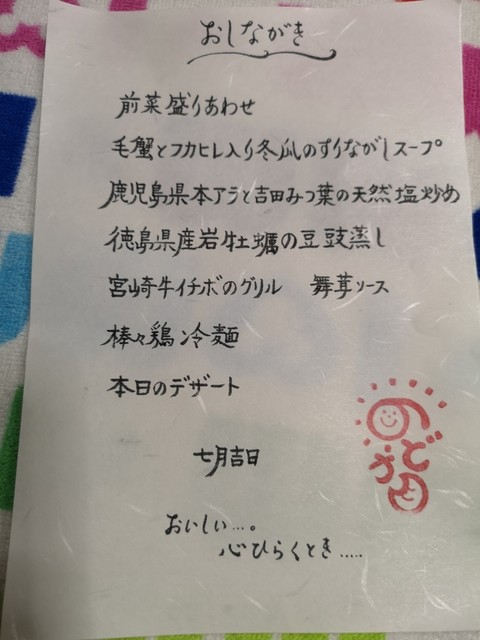 おしながき
前菜盛りあわせ
毛蟹とフカヒレ入り冬瓜のすりながしスープ
鹿児島県本アラと吉田みつ葉の天然塩炒め
徳島県産岩牡蠣の豆豉蒸し
宮崎牛イチボのグリル　舞茸ソース
棒々鶏冷麺
本日のデザート
七月吉日
おいしい…。
心ひらくとき.....